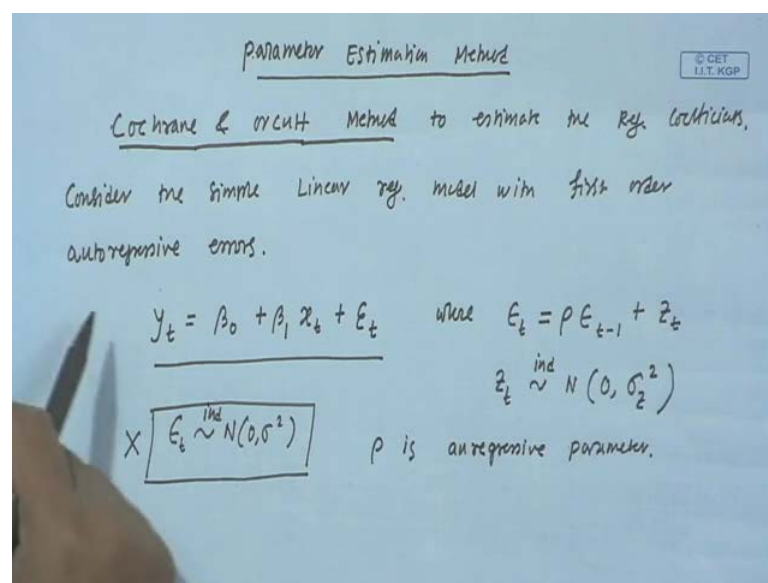 Parameter Estimation Method
© CET
I.I.T. KGP
Cochrane & Orcutt Method to estimate the Reg. Coefficients.
Consider the Simple Linear reg. model with first order
autoregressive errors.
y_t = β_0 + β_1 x_t + ε_t where ε_t = ρ ε_{t-1} + z_t
z_t ~^{ind} N(0, σ_z^2)
X ε_t ~^{ind} N(0, σ^2) ρ is auregressive parameter.